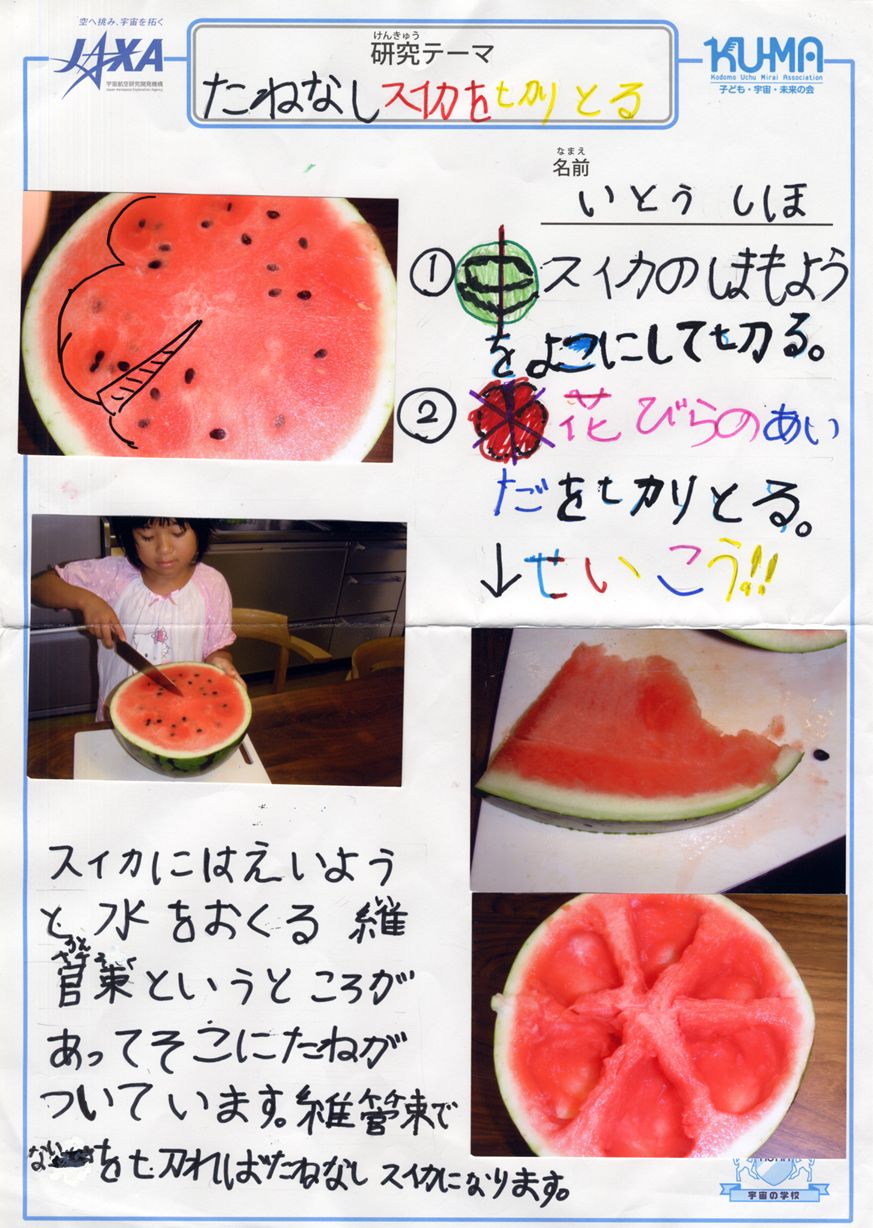 空へ挑み、宇宙を拓く
JAXA
宇宙航空研究開発機構
Japan Aerospace Exploration Agency
けんきゅう
研究テーマ
たねなしスイカを切りとる
KU-MA
Kodomo Uchu Mirai Association
子ども・宇宙・未来の会
なまえ
名前
いとう しほ
① スイカのしまもよう
をよこにして切る。
② 花びらのあい
だを切りとる。
↓せいこう!!
スイカにはえいよう
と水をおくる維
管束というところが
あってそこにたねが
ついています。維管束で
ないを切ればたねなしスイカになります。
宇宙の学校